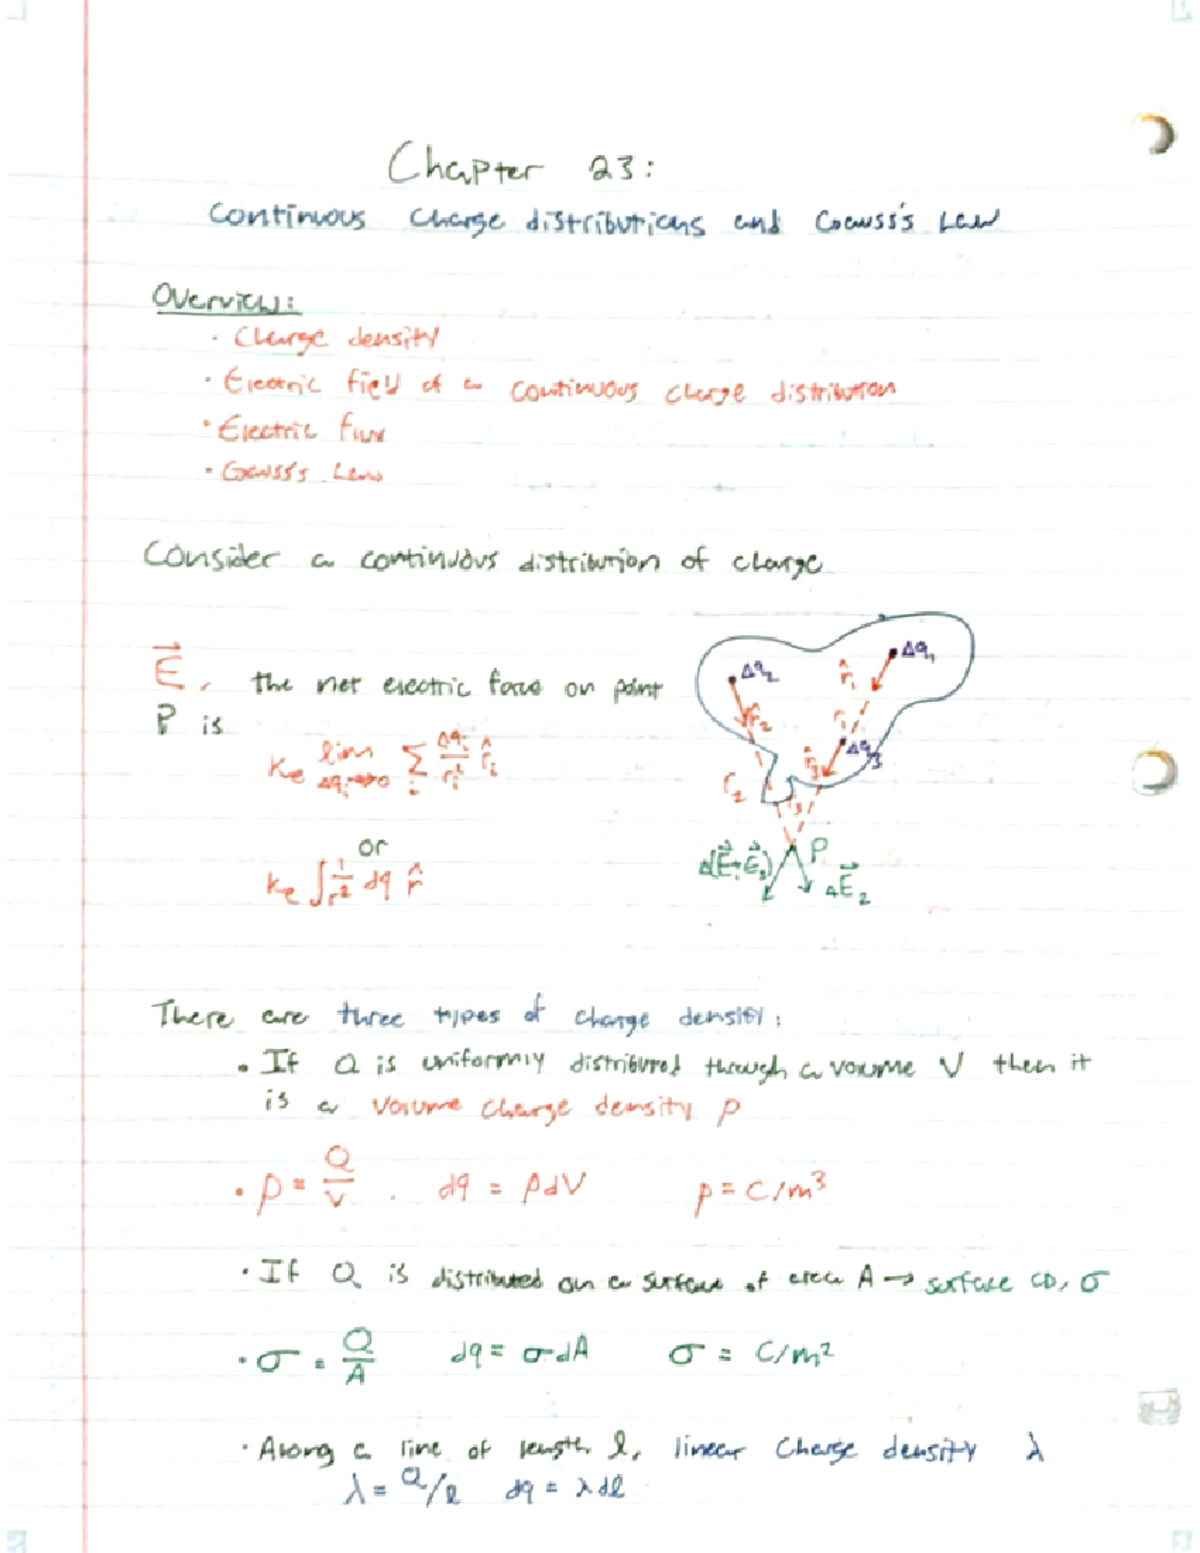 Chapter 23:
Continuous Charge distributions and Gauss's Law
Overview:
· Charge density
· Electric field of a continuous charge distribution
· Electric flux
· Gauss's Law
Consider a continuous distribution of charge
E⃗, the net electric force on point
P is
kₑ lim Δqᵢ→0 Σᵢ Δqᵢ/rᵢ² r̂ᵢ
or
kₑ ∫ 1/r² dq r̂
Δq₁
Δq₂
r̂₁
r̂₂
r₁
Δq₃
r̂₃
r₂
r₃
P
Δ(E⃗₁+E⃗₃)
ΔE⃗₂
There are three types of charge density:
· If Q is uniformly distributed through a volume V then it
is a volume charge density ρ
· ρ = Q/V . dq = ρdV ρ = C/m³
· If Q is distributed on a surface of area A → surface CD, σ
· σ = Q/A dq = σdA σ = C/m²
· Along a line of length ℓ, linear charge density λ
λ = Q/ℓ dq = λdℓ